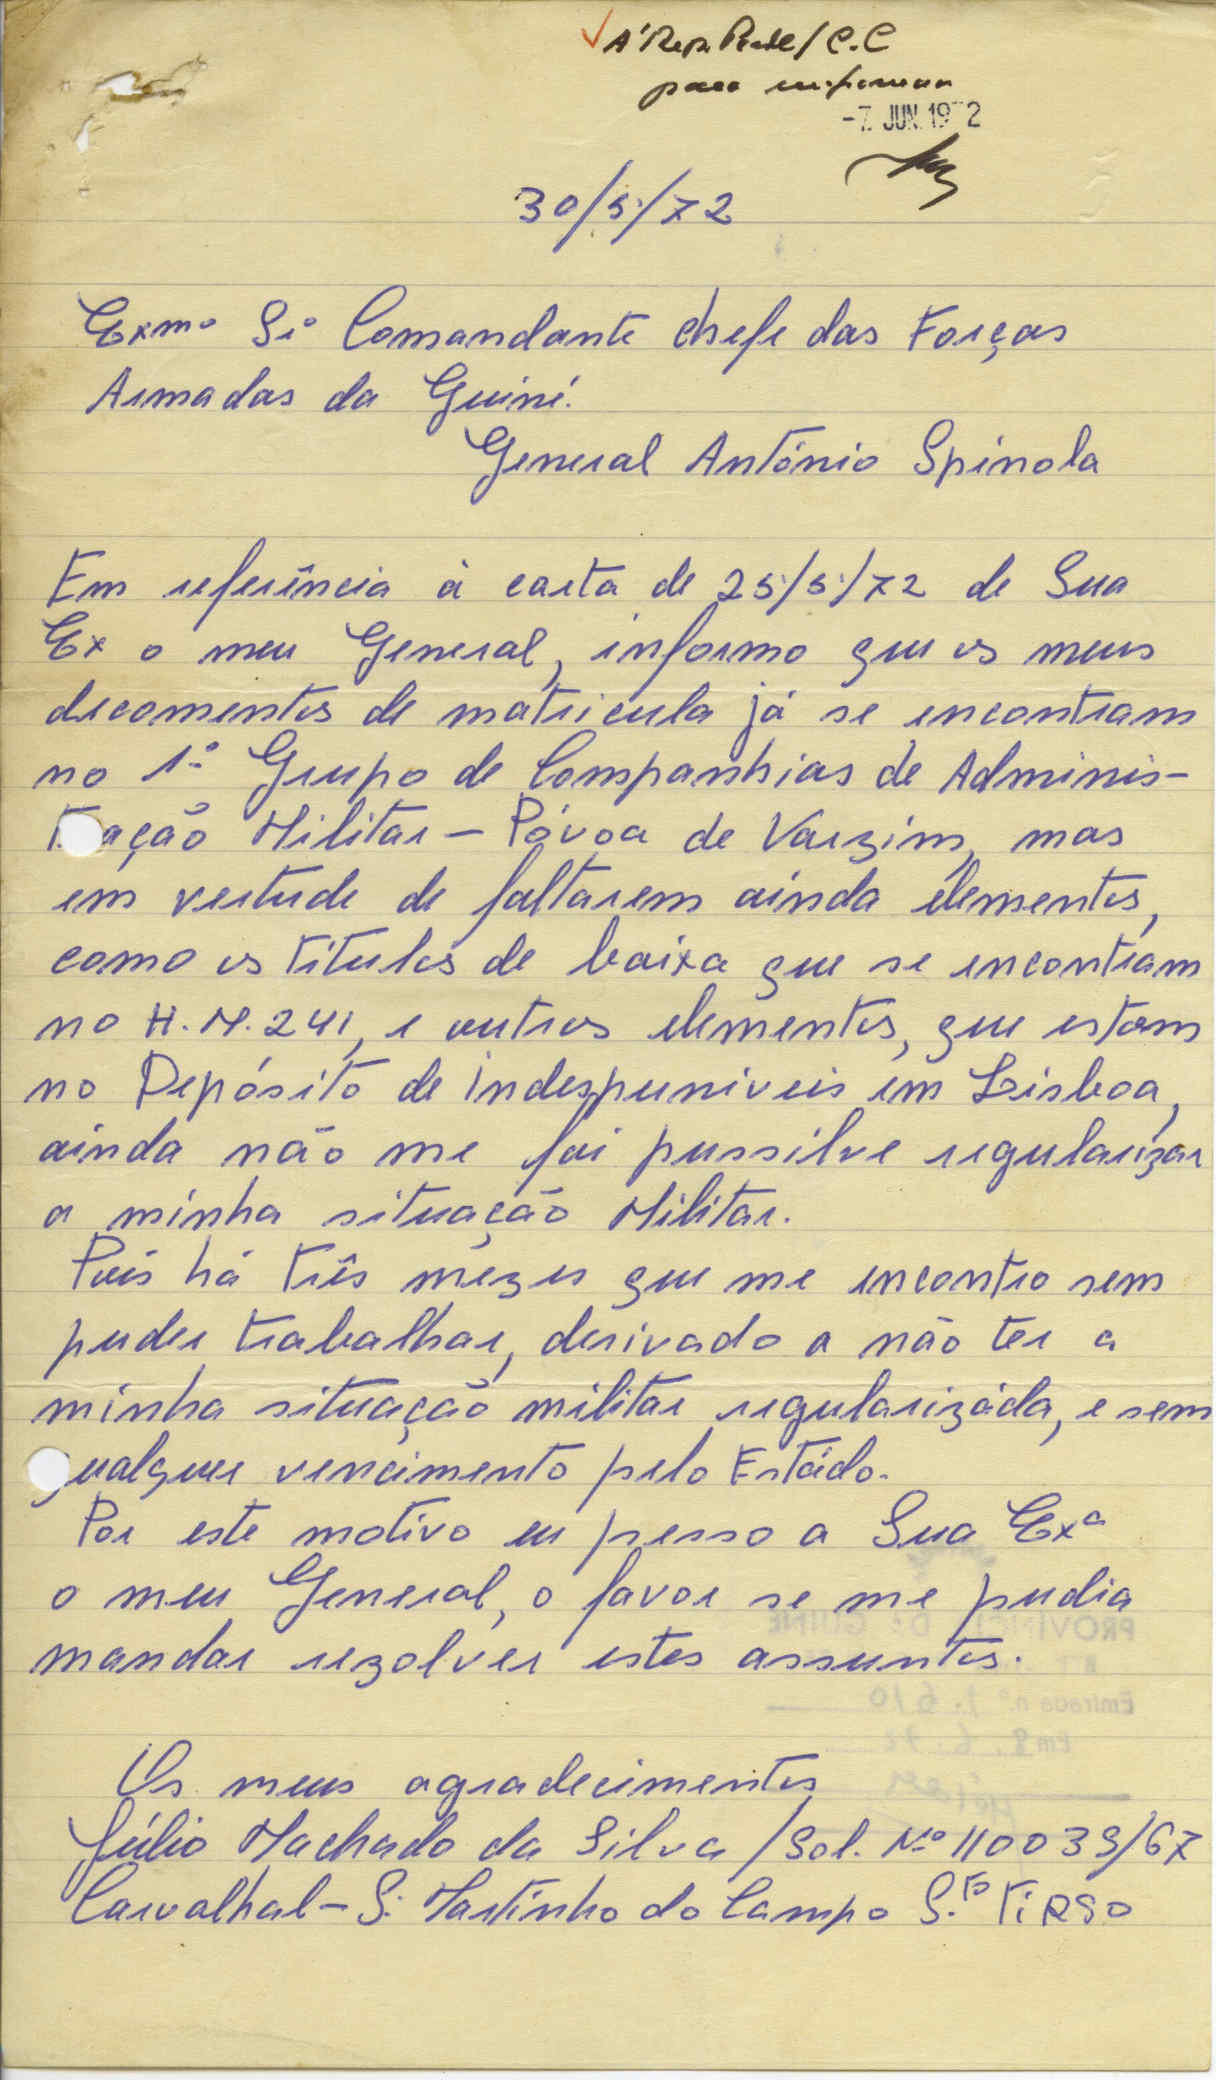 À Rep. /C.C
para informar
-7. JUN. 1972
30/5/72
Exmº Srº Comandante chefe das Forças
Armadas da Guiné.
General António Spínola
Em referência à carta de 25/5/72 de Sua
Ex o meu General, informo que os meus
decomentos de matricula já se encontram
no 1º Grupo de Companhias de Adminis-
tração Militar - Póvoa de Varzim, mas
em vertude de faltarem ainda elementos,
como os títulos de baixa que se encontram
no H.M.241, e outros elementos, que estam
no Depósito de indespuniveis em Lisboa,
ainda não me foi pussilve regularizar
a minha situação Militar.
Pois há três mezes que me encontro sem
puder trabalhar, derivado a não ter a
minha situação militar regularizáda, e sem
qualquer vencimento pelo Estádo.
Por este motivo eu pesso a Sua Exª
o meu General, o favor se me pudia
mandar rezolver estes assuntos.
PROVÍNCIA DA GUINÉ
Entrada n.º 1.610
Em 8.6.72
Os meus agradecimentos
Júlio Machado da Silva /Sol. Nº 110039/67
Carvalhal - S. Martinho do Campo S.to TiRSO